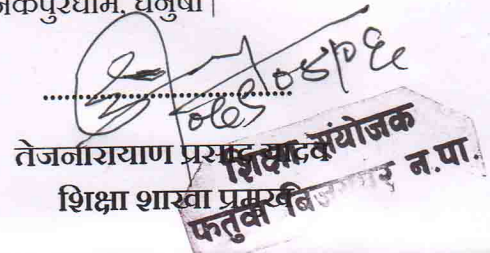 जनकपुरधाम, धनुषा
तेजनारायाण प्रसाद यादव
शिक्षा शाखा प्रमुख
शिक्षा संयोजक
फतुवा बिजयपुर न.पा.